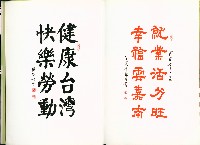 就業活力旺
幸福雲嘉南
健康台灣
快樂勞動